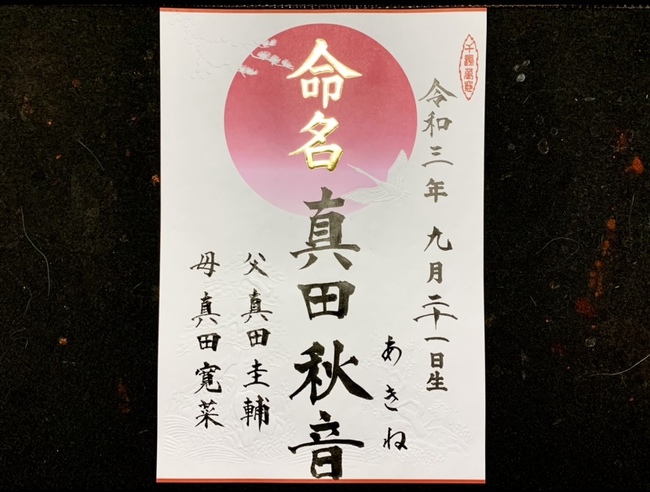 令和三年 九月二十一日生
命名 真田秋音
あきね
父 真田圭輔
母 真田寛菜